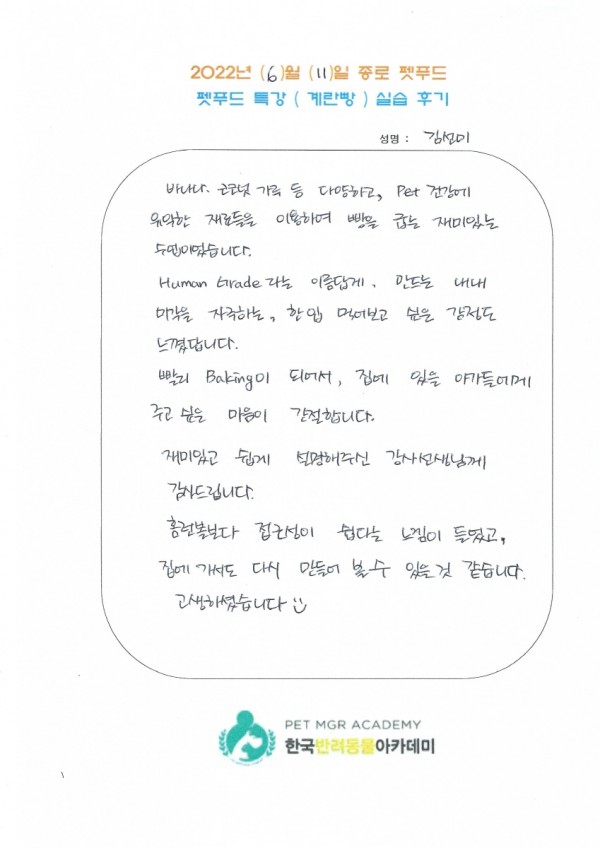 2022년 (6)월 (11)일 종로 펫푸드
펫푸드 특강 ( 계란빵 ) 실습 후기
성명 : 김선미
바나나. 코코넛 가루 등 다양하고, Pet 건강에
유익한 재료들을 이용하여 빵을 굽는 재미있는
수업이었습니다.
Human Grade라는 이름답게, 만드는 내내
미각을 자극하는, 한입 먹어보고 싶은 감정도
느꼈답니다.
빨리 Baking이 되어서, 집에 있을 아가들에게
주고 싶은 마음이 간절합니다.
재미있고 쉽게 설명해주신 강사선생님께
감사드립니다.
홍련볼보다 접근성이 쉽다는 느낌이 들었고,
집에 가서도 다시 만들어 볼 수 있을 것 같습니다.
고생하셨습니다
PET MGR ACADEMY
한국반려동물아카데미